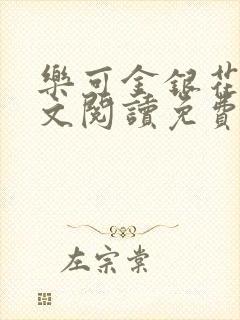 樂可金銀花
文閱讀免費
左宗棠